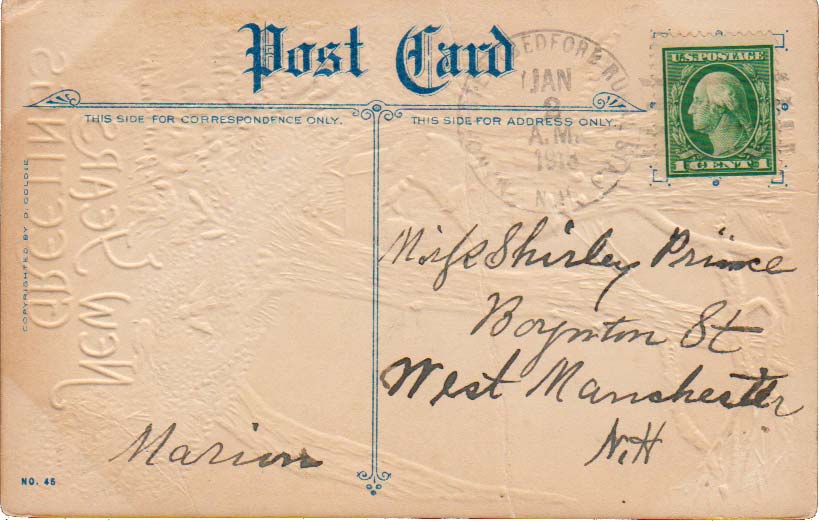 Post Card
THIS SIDE FOR CORRESPONDENCE ONLY.
THIS SIDE FOR ADDRESS ONLY.
BEDFORD
JAN
A.M.
N.H.
U.S. POSTAGE
1 CENT 1
COPYRIGHTED BY D. GOLDIE
NEW YEARS
GREETINGS
Miss Shirley Prince
Boynton St
West Manchester
N.H
Marion
NO. 45